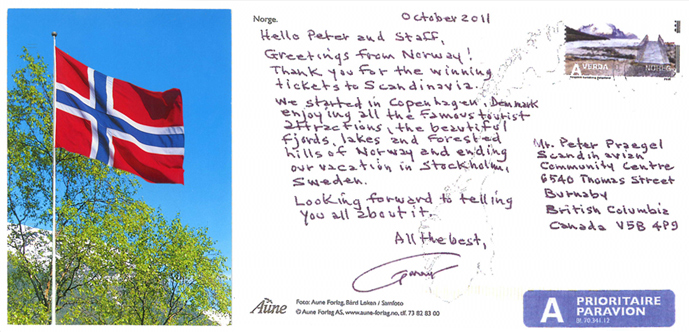 Norge.
October 2011
Hello Peter and Staff,
Greetings from Norway!
Thank you for the winning
tickets to Scandinavia.
We started in Copenhagen, Denmark
enjoying all the famous tourist
attractions, the beautiful
fjords, lakes and forested
hills of Norway and ending
our vacation in Stockholm,
Sweden.
Looking forward to telling
you all about it.
All the best,
A VERDA
NOREG
Mr. Peter Praegel
Scandinavian
Community Centre
6540 Thomas Street
Burnaby
British Columbia
Canada V5B 4P9
Aune
Foto: Aune Forlag, Bård Løken / Samfoto
© Aune Forlag AS, www.aune-forlag.no, tlf. 73 82 83 00
A PRIORITAIRE
PAR AVION